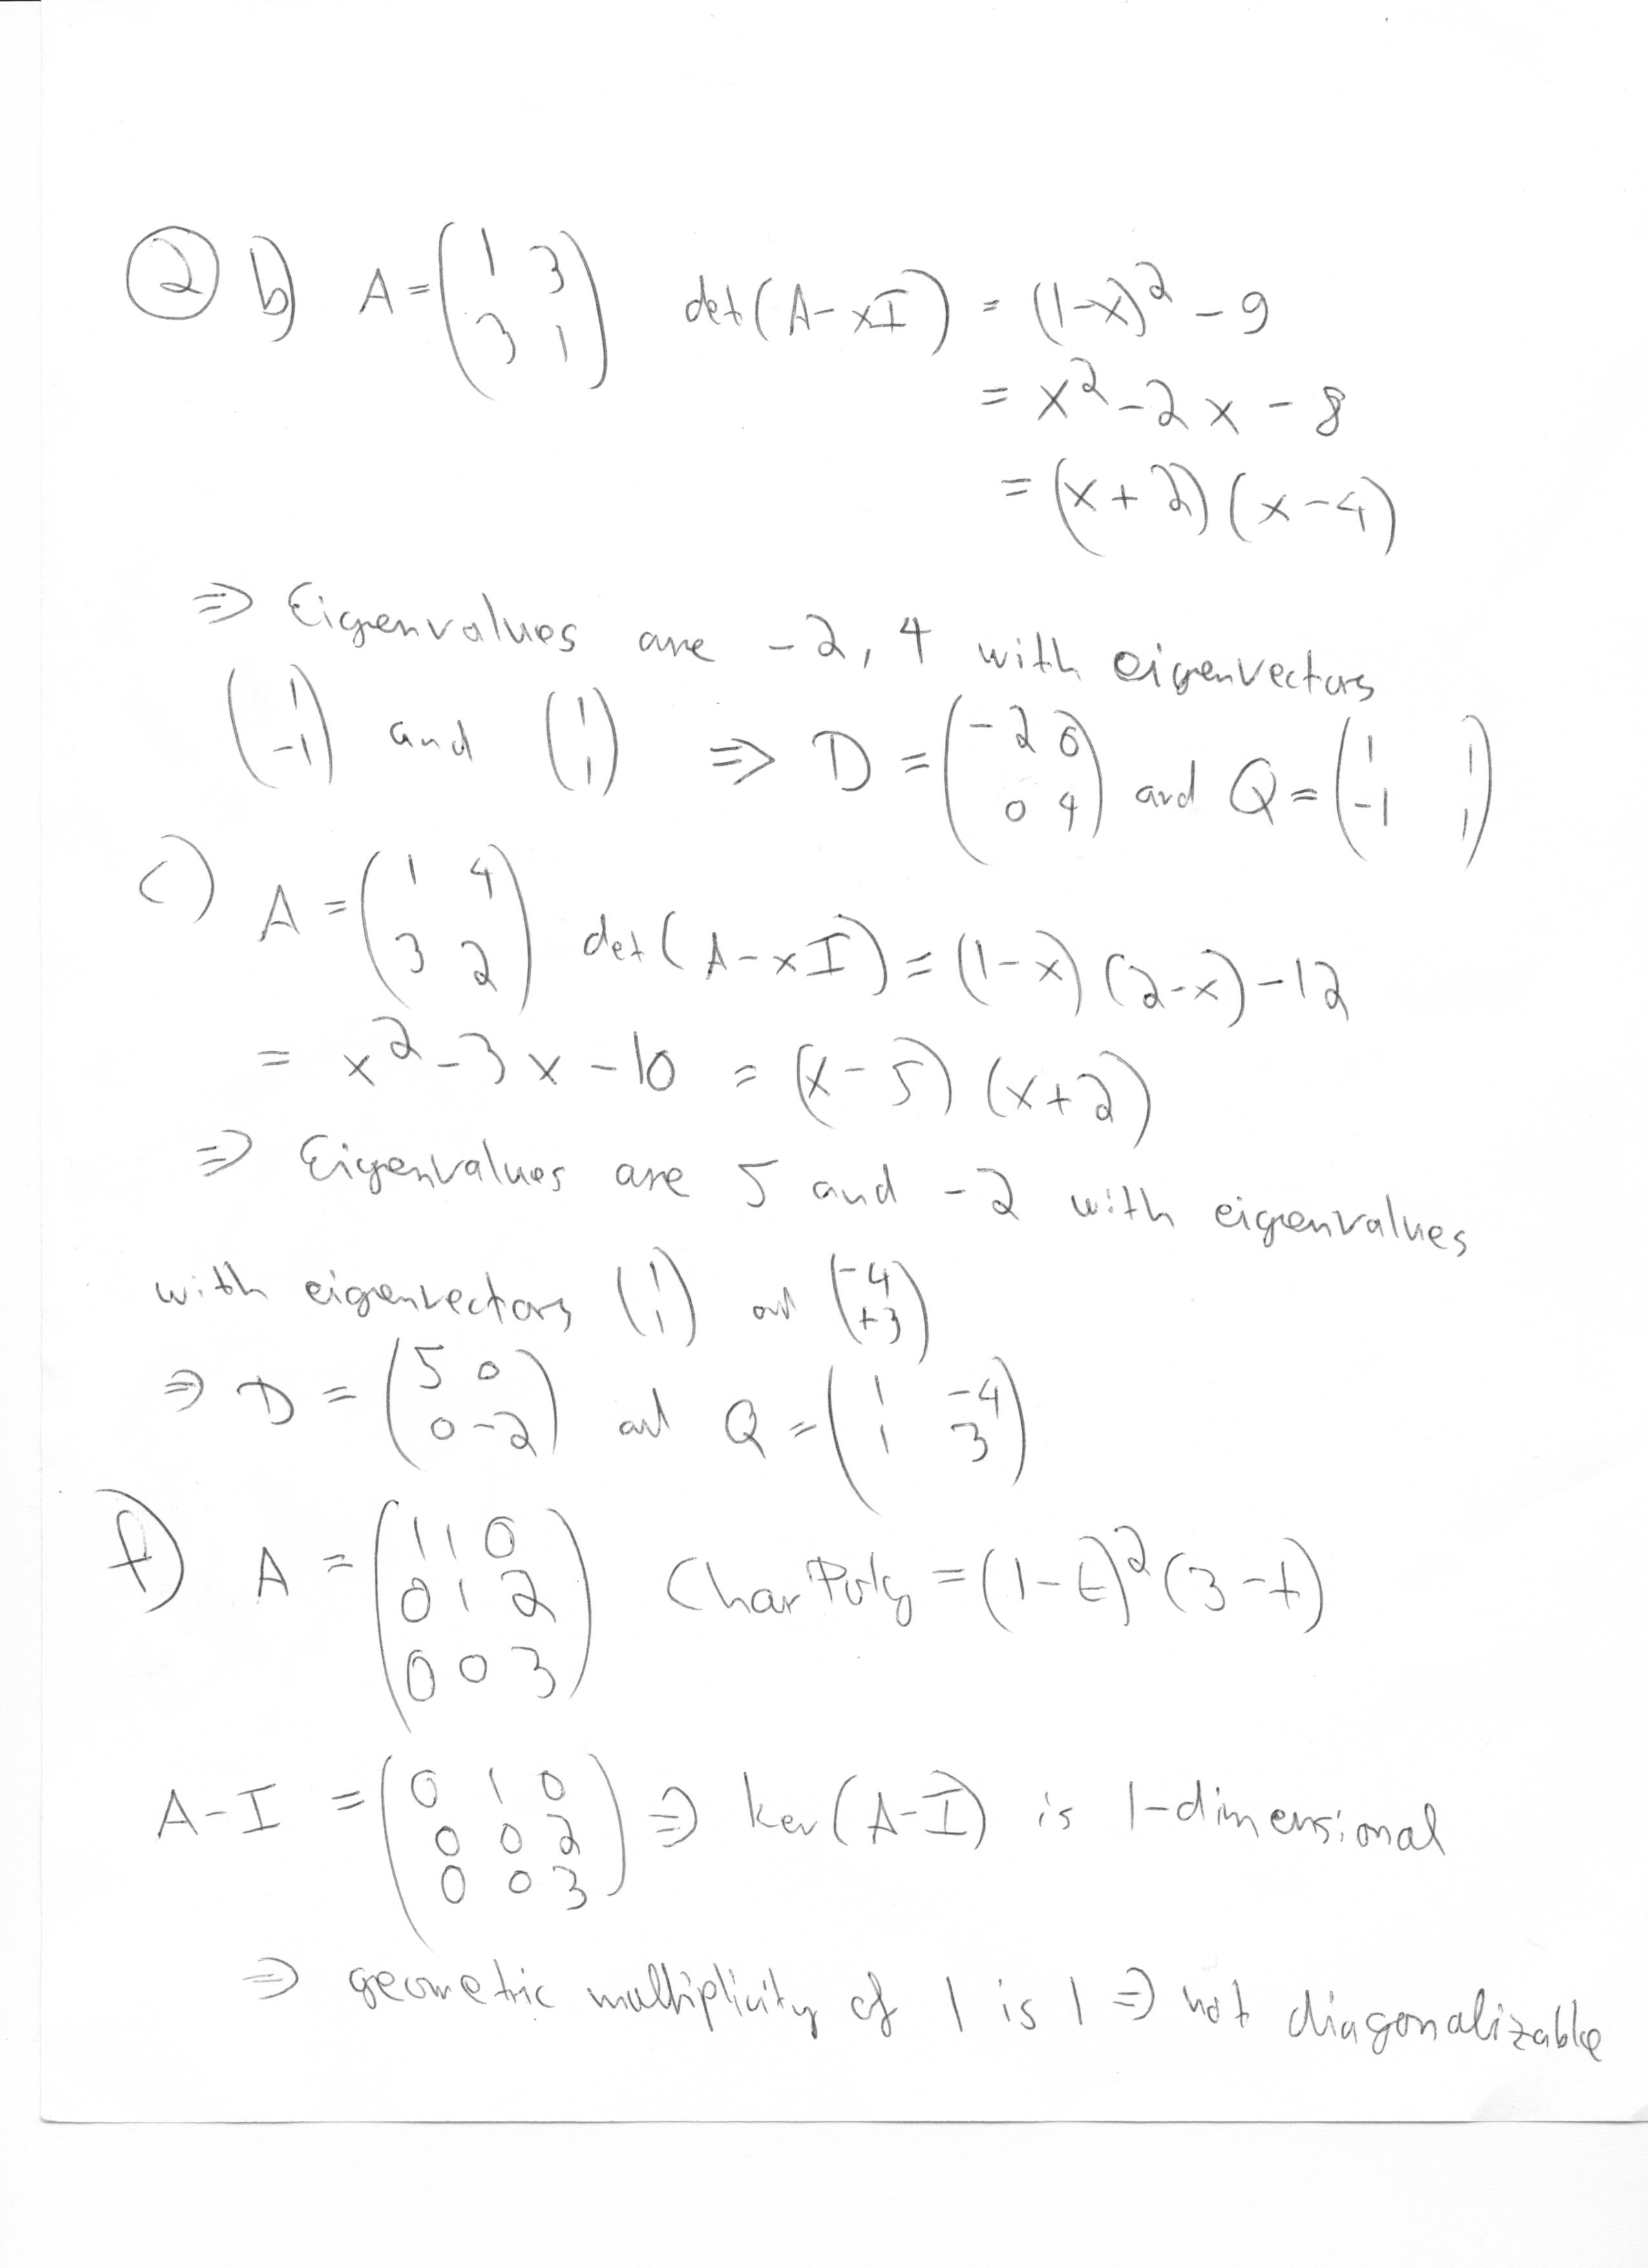 ② b) A = (1 3; 3 1) det(A - xI) = (1-x)² - 9
= x² - 2x - 8
= (x+2)(x-4)
⇒ Eigenvalues are -2, 4 with eigenvectors
(1; -1) and (1; 1) ⇒ D = (-2 0; 0 4) and Q = (1 1; -1 1)
c) A = (1 4; 3 2) det(A - xI) = (1-x)(2-x) - 12
= x² - 3x - 10 = (x-5)(x+2)
⇒ Eigenvalues are 5 and -2 with eigenvalues
with eigenvectors (1; 1) and (-4; +3)
⇒ D = (5 0; 0 -2) and Q = (1 -4; 1 3)
f) A = (1 1 0; 0 1 2; 0 0 3) Char Poly = (1-t)²(3-t)
A - I = (0 1 0; 0 0 2; 0 0 3) ⇒ ker(A-I) is 1-dimensional
⇒ geometric multiplicity of 1 is 1 ⇒ not diagonalizable